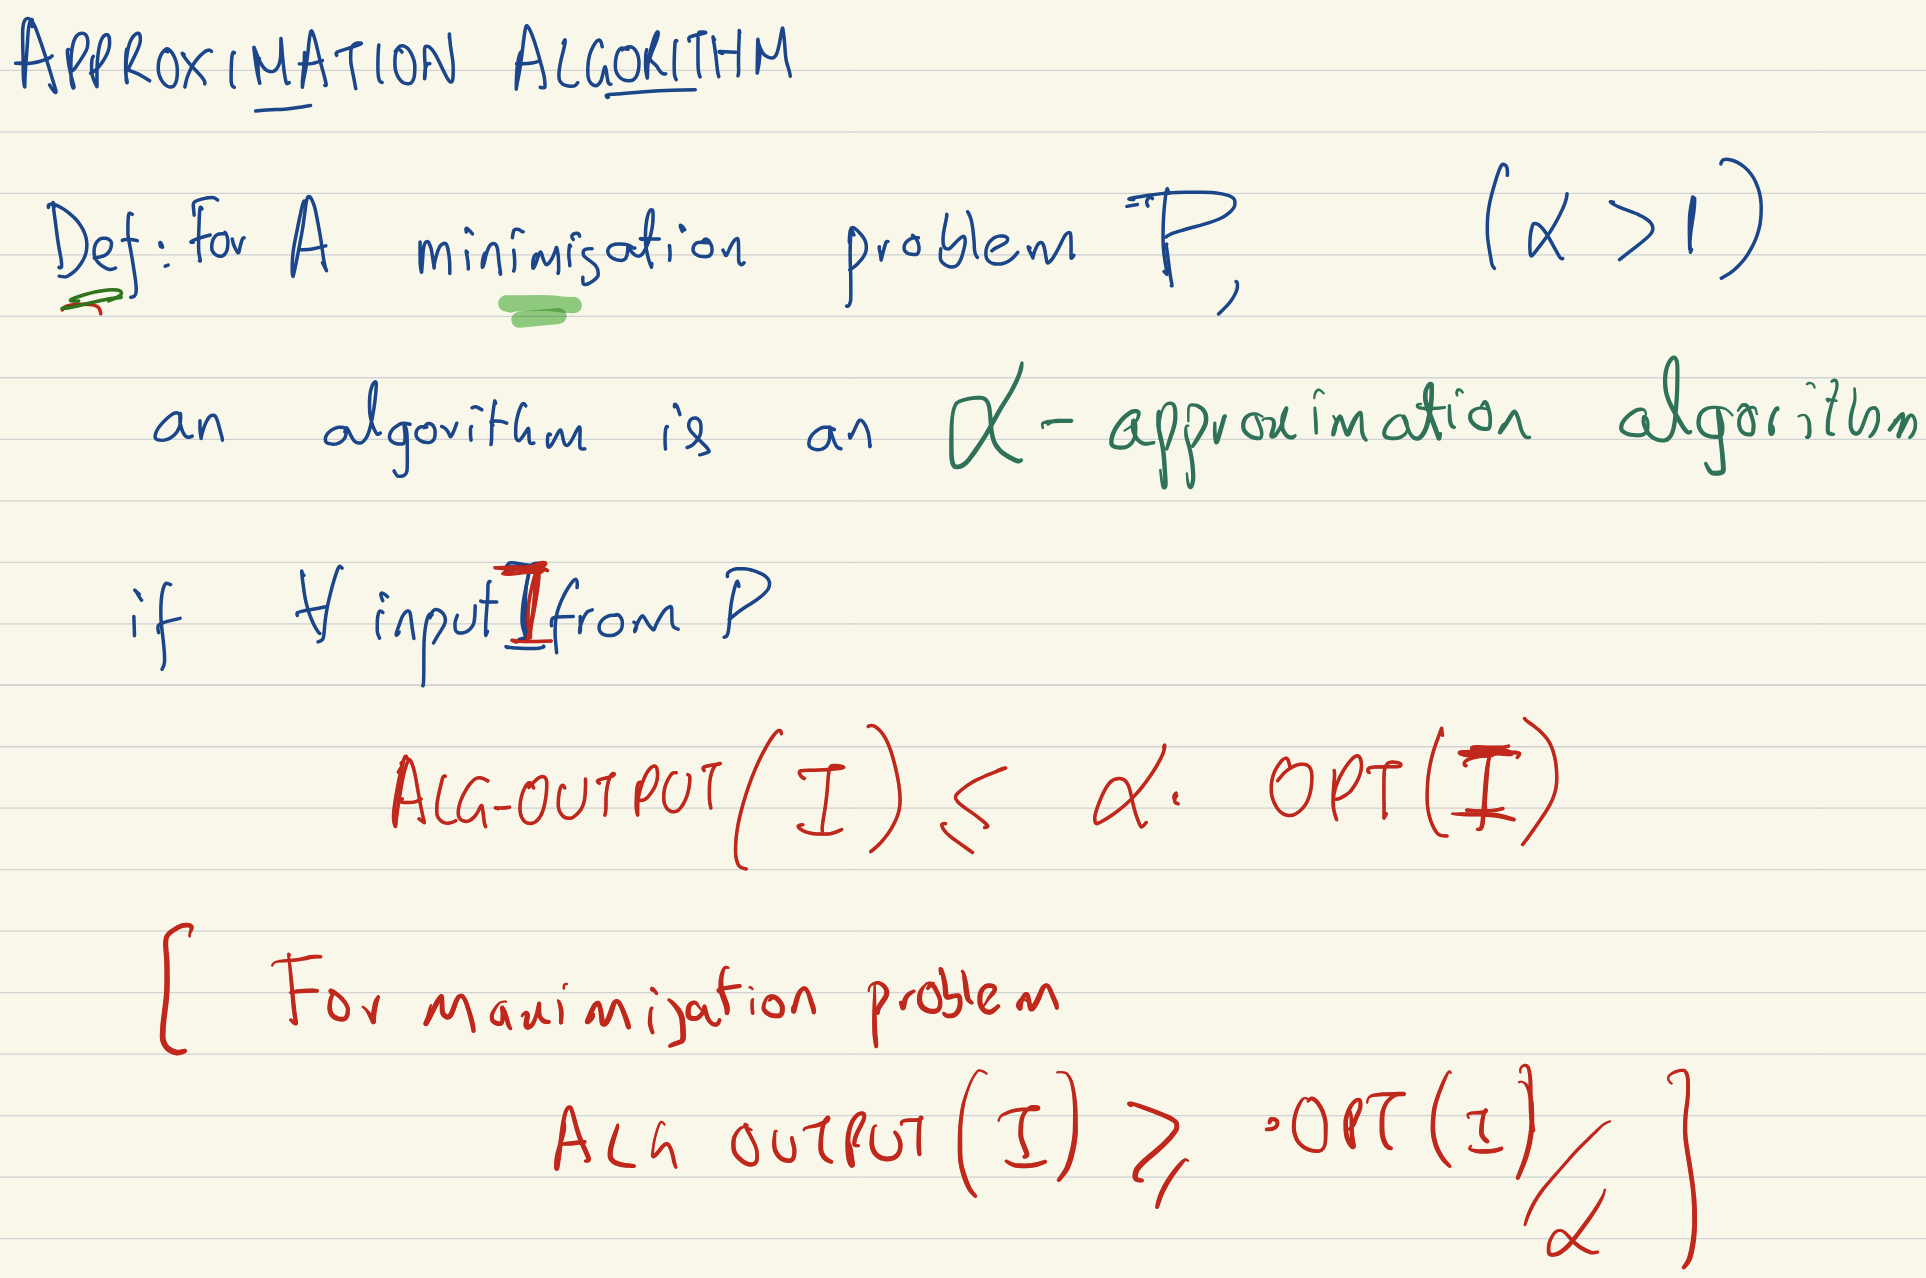 APPROXIMATION ALGORITHM
Def: For A minimisation problem P, (α > 1)
an algorithm is an α-approximation algorithm
if ∀ input I from P
ALG-OUTPUT(I) ≤ α. OPT(I)
[ For maximization problem
ALG OUTPUT(I) ≥ .OPT(I)/α ]